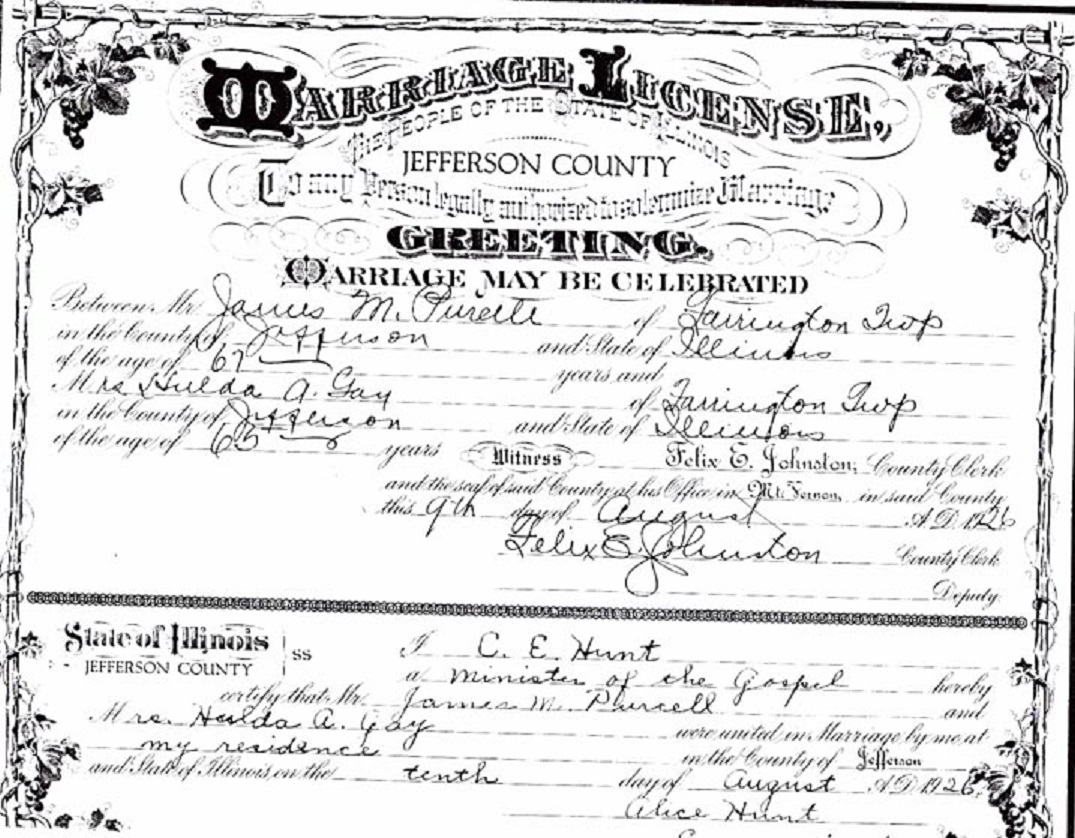 MARRIAGE LICENSE,
THE PEOPLE OF THE STATE OF ILLINOIS
JEFFERSON COUNTY
To any Person legally authorized to solemnize Marriage
GREETING.
MARRIAGE MAY BE CELEBRATED
Between Mr. James M. Purcell of Farrington Twp
in the County of Jefferson and State of Illinois
of the age of 67 years and
Mrs Hulda A. Gay of Farrington Twp
in the County of Jefferson and State of Illinois
of the age of 63 years Witness Felix E. Johnston, County Clerk
and the seal of said County at his Office in Mt. Vernon, in said County
this 9th day of August A.D. 1926
Felix E. Johnston County Clerk
Deputy.
State of Illinois
JEFFERSON COUNTY ss I C. E. Hunt
a minister of the Gospel hereby
certify that Mr. James M. Purcell and
Mrs. Hulda A. Gay were united in Marriage by me at
my residence in the County of Jefferson
and State of Illinois, on the tenth day of August A.D. 1926.
Alice Hunt